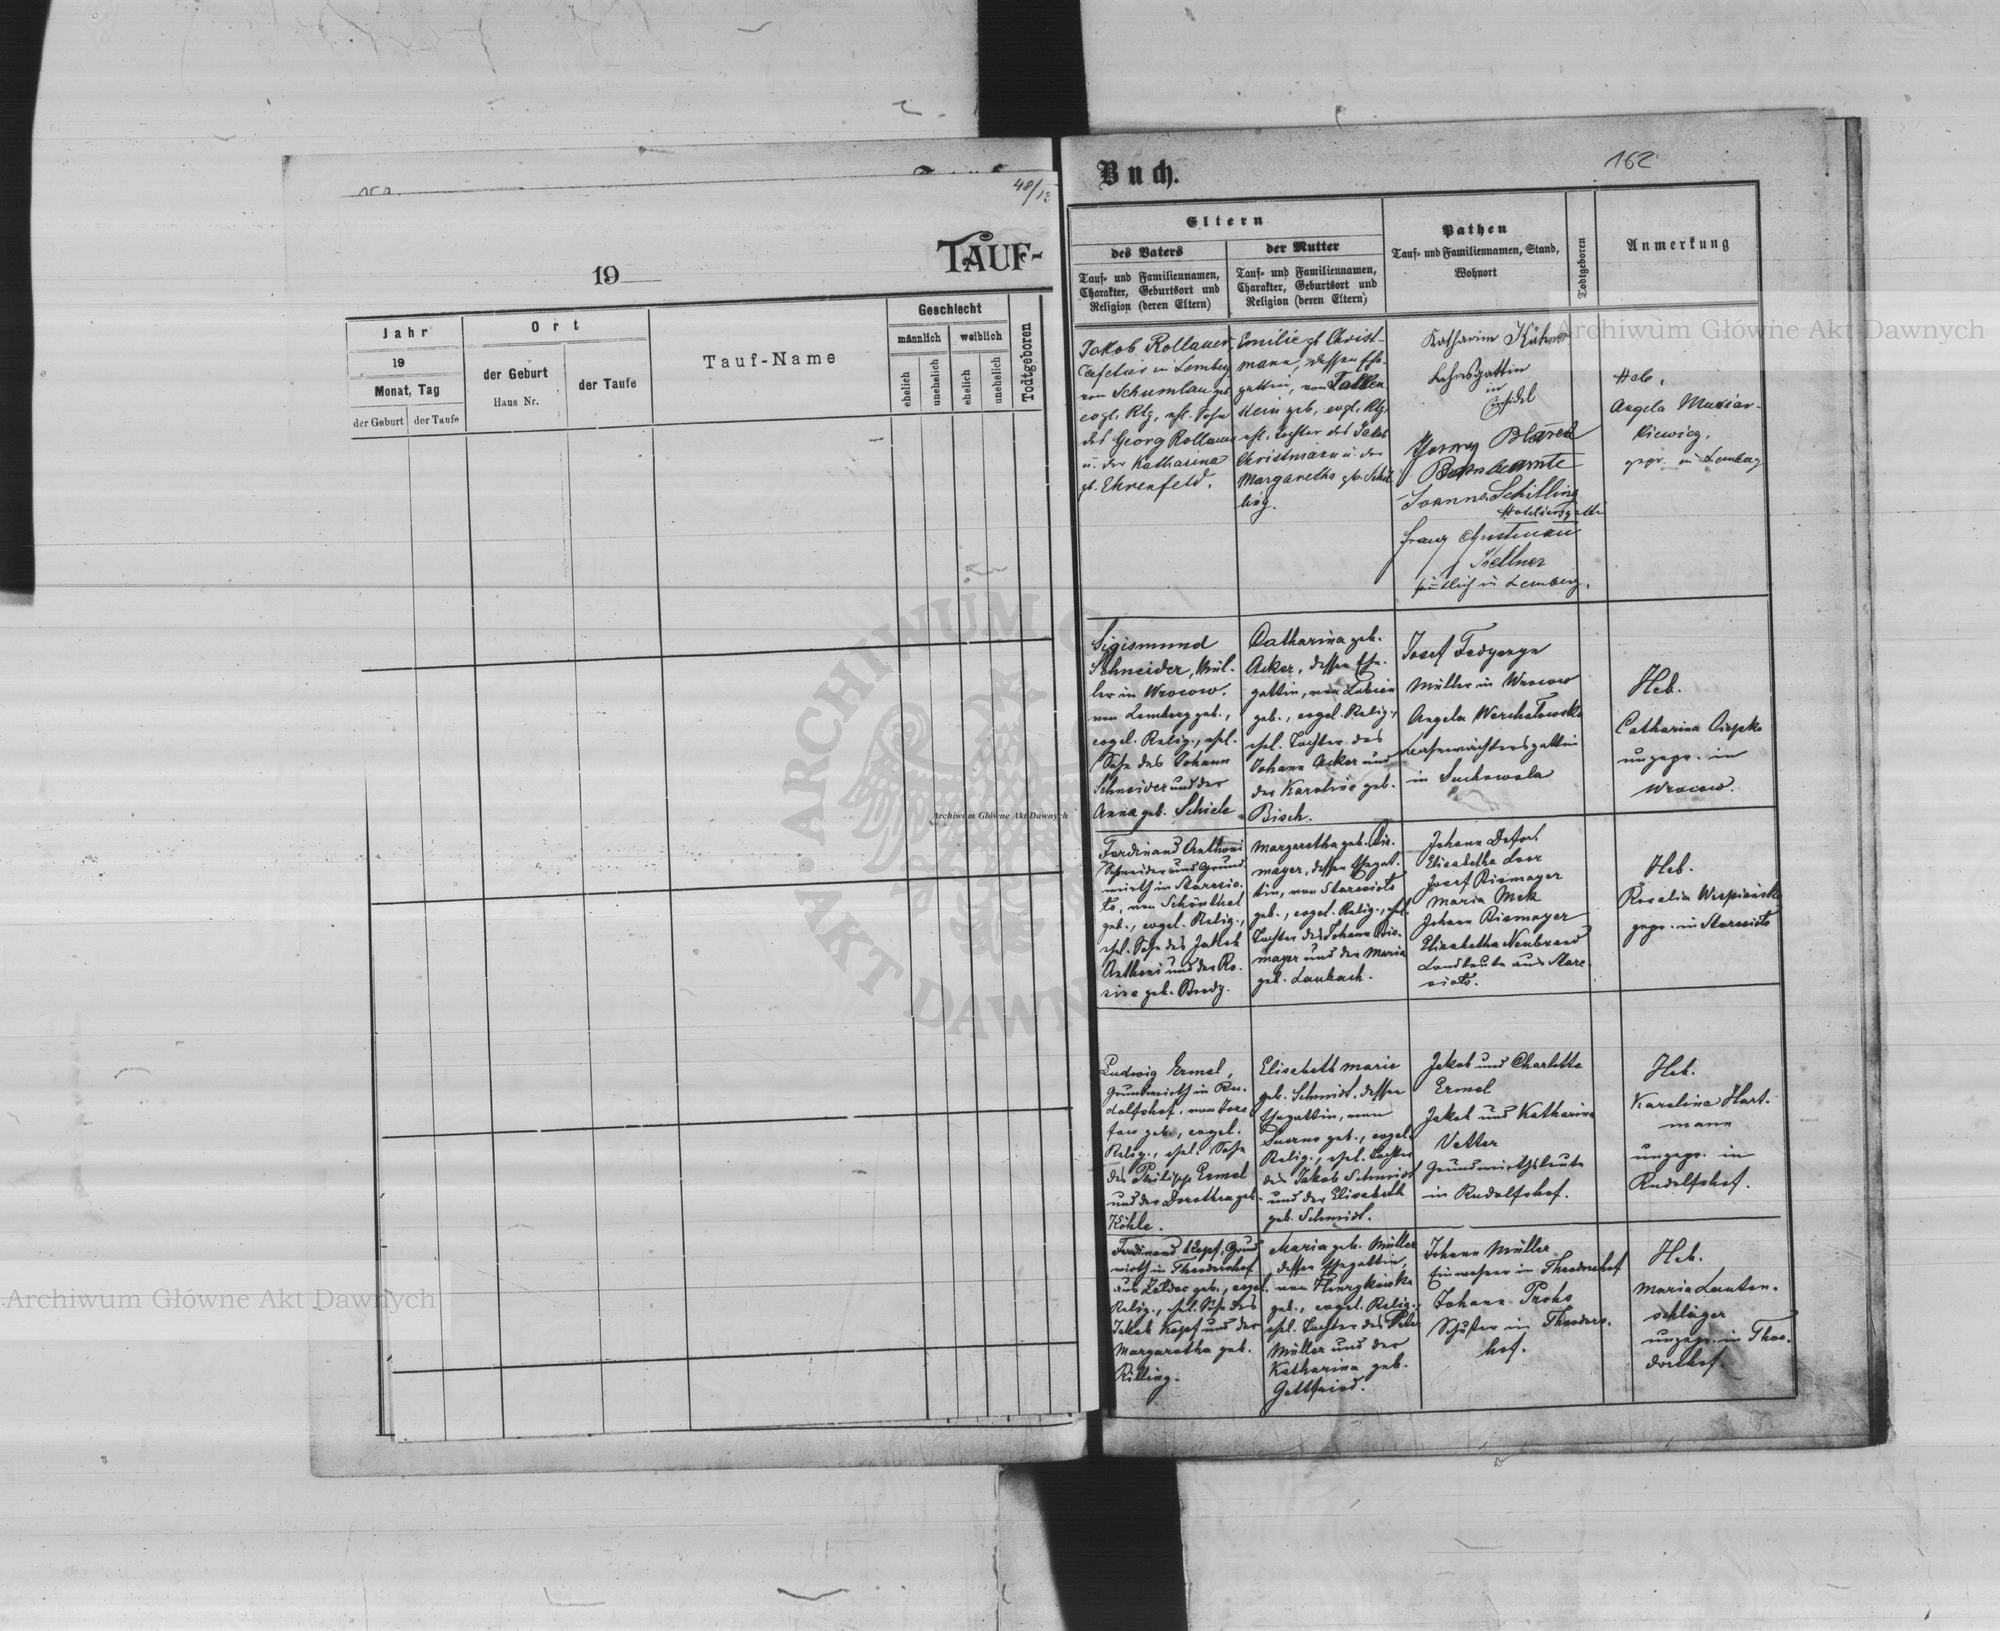 48/12
TAUF-
19
Jahr
19
Monat, Tag
der Geburt
der Taufe
Ort
der Geburt
Haus Nr.
der Taufe
Tauf-Name
Geschlecht
männlich
weiblich
ehelich
unehelich
ehelich
unehelich
Todtgeboren
Buch.
162
Eltern
des Vaters
Tauf- und Familiennamen,
Charakter, Geburtsort und
Religion (deren Eltern)
der Mutter
Tauf- und Familiennamen,
Charakter, Geburtsort und
Religion (deren Eltern)
Pathen
Tauf- und Familiennamen, Stand,
Wohnort
Todtgeboren
Anmerkung
Jakob Rollauer
Cafetier in Lemberg
von Schumlau geb.
evgl. Rlg., ehl. Sohn
des Georg Rollauer
u. der Katharina
gb. Ehrenfeld.
Emilie gb Christ-
mann, dessen Ehe-
gattin, von Falken
stein geb., evgl. Rlg.
ehl. Tochter des Jakob
Christmann u. der
Margaretha gb. Schil
ling.
Katharina Kühner
Lehrersgattin
in
Blarek
Bahnbeamte
Joanna Schilling
Hoteliersgattin
Franz Christman
Kellner
sämtlich in Lemberg.
Heb.
Angela
kiewicz,
gepr. in Lemberg
Sigismund
Schneider, Mül-
ler in Wrocow,
von Lemberg geb.,
evgel. Relig., ehel.
Sohn des Johann
Schneider und der
Anna geb. Schick
Catharina geb.
Acker, dessen Ehe-
gattin, von
geb., evgel. Relig.,
ehel. Tochter des
Johann Acker und
der Karoline geb.
Bisch.
Josef
Müller in Wrocow
Angela Werchatowska
in Suchowola
Heb.
Catharina
ungepr. in
Wrocow.
Ferdinand Anthoni
Schneider und Grund
wirth in Staresio-
ło, von Schönthal
geb., evgel. Relig.,
ehel. Sohn des Jakob
Anthoni und der Ro-
sine geb. Bredy.
Margaretha geb. Rie-
mayer, dessen Ehegat-
tin, von Staresioło
geb., evgel. Relig., ehel.
Tochter des Johann Rie-
mayer und der Maria
geb. Laubach.
Johann
Elisabetha
Josef Riemayer
Maria Mek
Johann Riemayer
Elisabetha Neubrand
Landleute aus Stare-
sioło.
Heb.
Rosalia
gepr. in Staresioło
Ludwig Ermel,
Grundwirth in Ru-
dolfshof, von Jose
fow geb., evgel.
Relig., ehel. Sohn
des Philipp Ermel
und der Dorothea geb.
Köhle.
Elisabeth Marie
geb. Schmidt, dessen
Ehegattin, von
geb., evgel.
Relig., ehel. Tochter
des Jakob Schmidt
und der Elisabeth
geb. Schmidt.
Jakob und Charlotte
Ermel
Jakob und Katharina
Vetter
Grundwirthsleute
in Rudolfshof.
Heb.
Karolina Hart-
mann
ungepr. in
Rudolfshof.
Ferdinand Kopf, Grund
wirth in Theodorshof
aus geb., evgel.
Relig., ehel. Sohn des
Jakob Kopf und der
Margaretha geb.
Rilling.
Maria geb. Müller
dessen Ehegattin,
von
geb., evgel. Relig.,
ehel. Tochter des Peter
Müller und der
Katharina geb.
Gottfried.
Johann Müller
Einwohner in Theodorshof
Johann Prohs
Schuster in Theodors-
hof.
Heb.
Maria Lauten-
schläger
ungepr. in Theo-
dorshof
Archiwum Główne Akt Dawnych
Archiwum Główne Akt Dawnych
Archiwum Główne Akt Dawnych